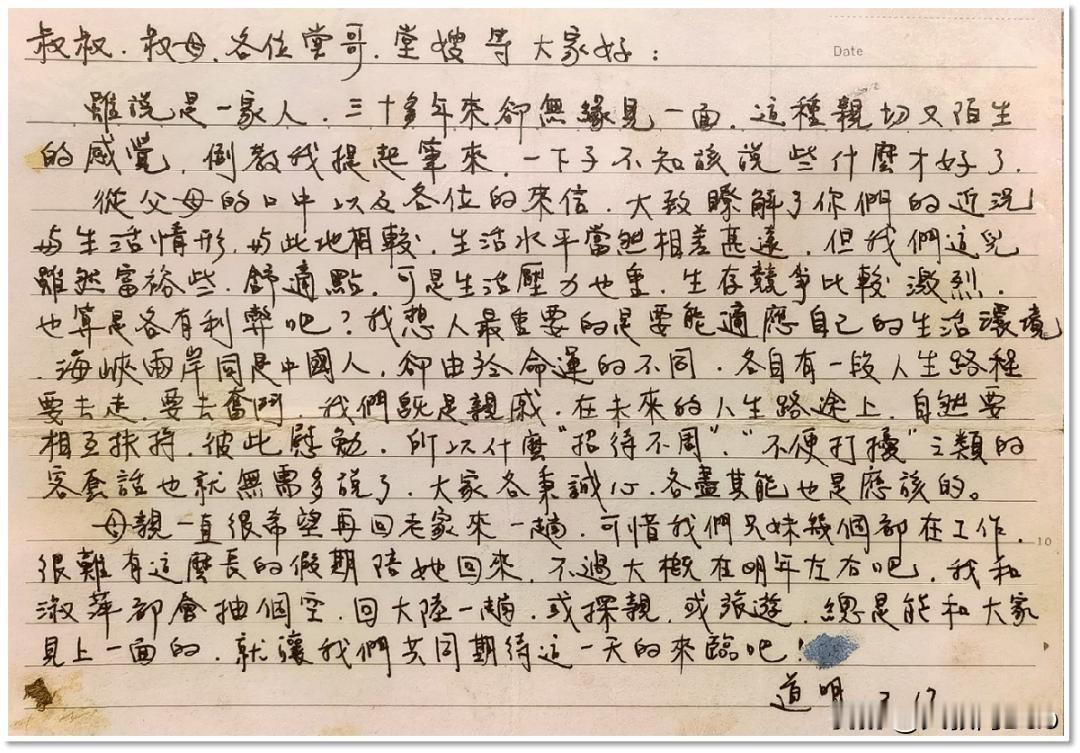 叔叔.叔母.各位堂哥.堂嫂等大家好:
Date
雖說是一家人.三十多年來卻無緣見一面.這種親切又陌生
的感覺,倒教我提起筆來.一下子不知該說些什麼才好了.
從父母的口中以及各位的來信.大致瞭解了你們的近況
与生活情形,与此地相較.生活水平當然相差甚遠.但我們這兒
雖然富裕些.舒適點.可是生活壓力也重.生存競爭比較激烈.
也算是各有利弊吧?我想人最重要的是要能適應自己的生活環境
.海峽兩岸同是中國人.卻由於命運的不同.各自有一段人生路程
要去走.要去奮鬥.我們既是親戚.在未來的人生路途上.自然要
相互扶持.彼此慰勉.所以什麼"招待不周""不便打擾"之類的
客套話也就無需多說了.大家各秉誠心.各盡其能也是應該的。
母親一直很希望再回老家來一趟.可惜我們兄妹幾個都在工作.
10
很難有這麼長的假期陪她回來.不過大概在明年左右吧.我和
淑萍都會抽個空.回大陸一趟.或探親.或旅遊.總是能和大家
見上一面的.就讓我們共同期待這一天的來臨吧!
道明 7 17